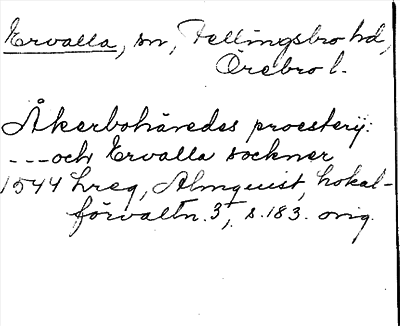 Ervalla, sn, Fellingsbro hd,
Örebro l.
Åkerbohäredes proesterij:
---och Ervalla sockner
1544 Lreg, Almquist, Lokal-
förvaltn. 3, s. 183. orig.